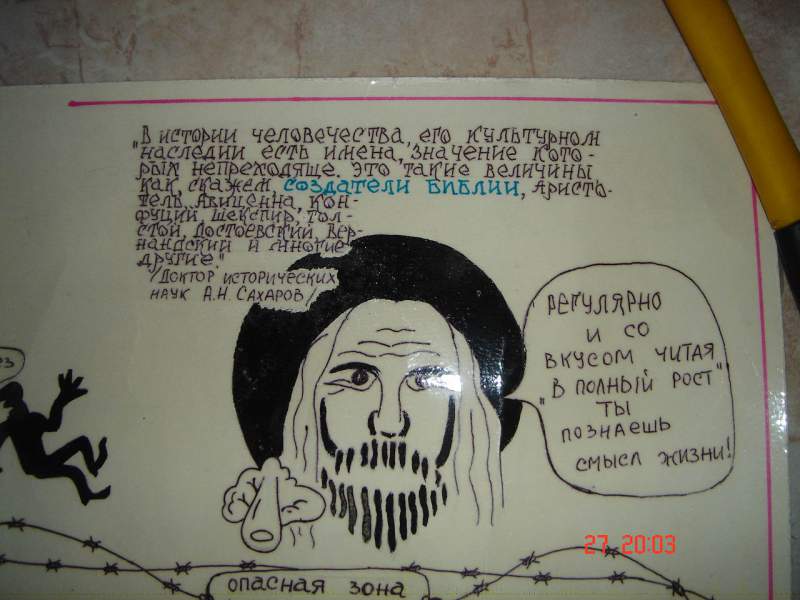 "В истории человечества, его культурном
наследии есть имена, значение кото-
рых непреходяще. Это такие величины
как, скажем, создатели Библии, Аристо-
тель, Авиценна, Кон-
фуций, Шекспир, Тол-
стой, Достоевский, Вер-
надский и многие
другие"
/Доктор исторических
наук А.Н. Сахаров/
РЕГУЛЯРНО
И СО
ВКУСОМ ЧИТАЯ
"В ПОЛНЫЙ РОСТ"
ТЫ
ПОЗНАЕШЬ
СМЫСЛ ЖИЗНИ!
ОПАСНАЯ ЗОНА
27 20:03